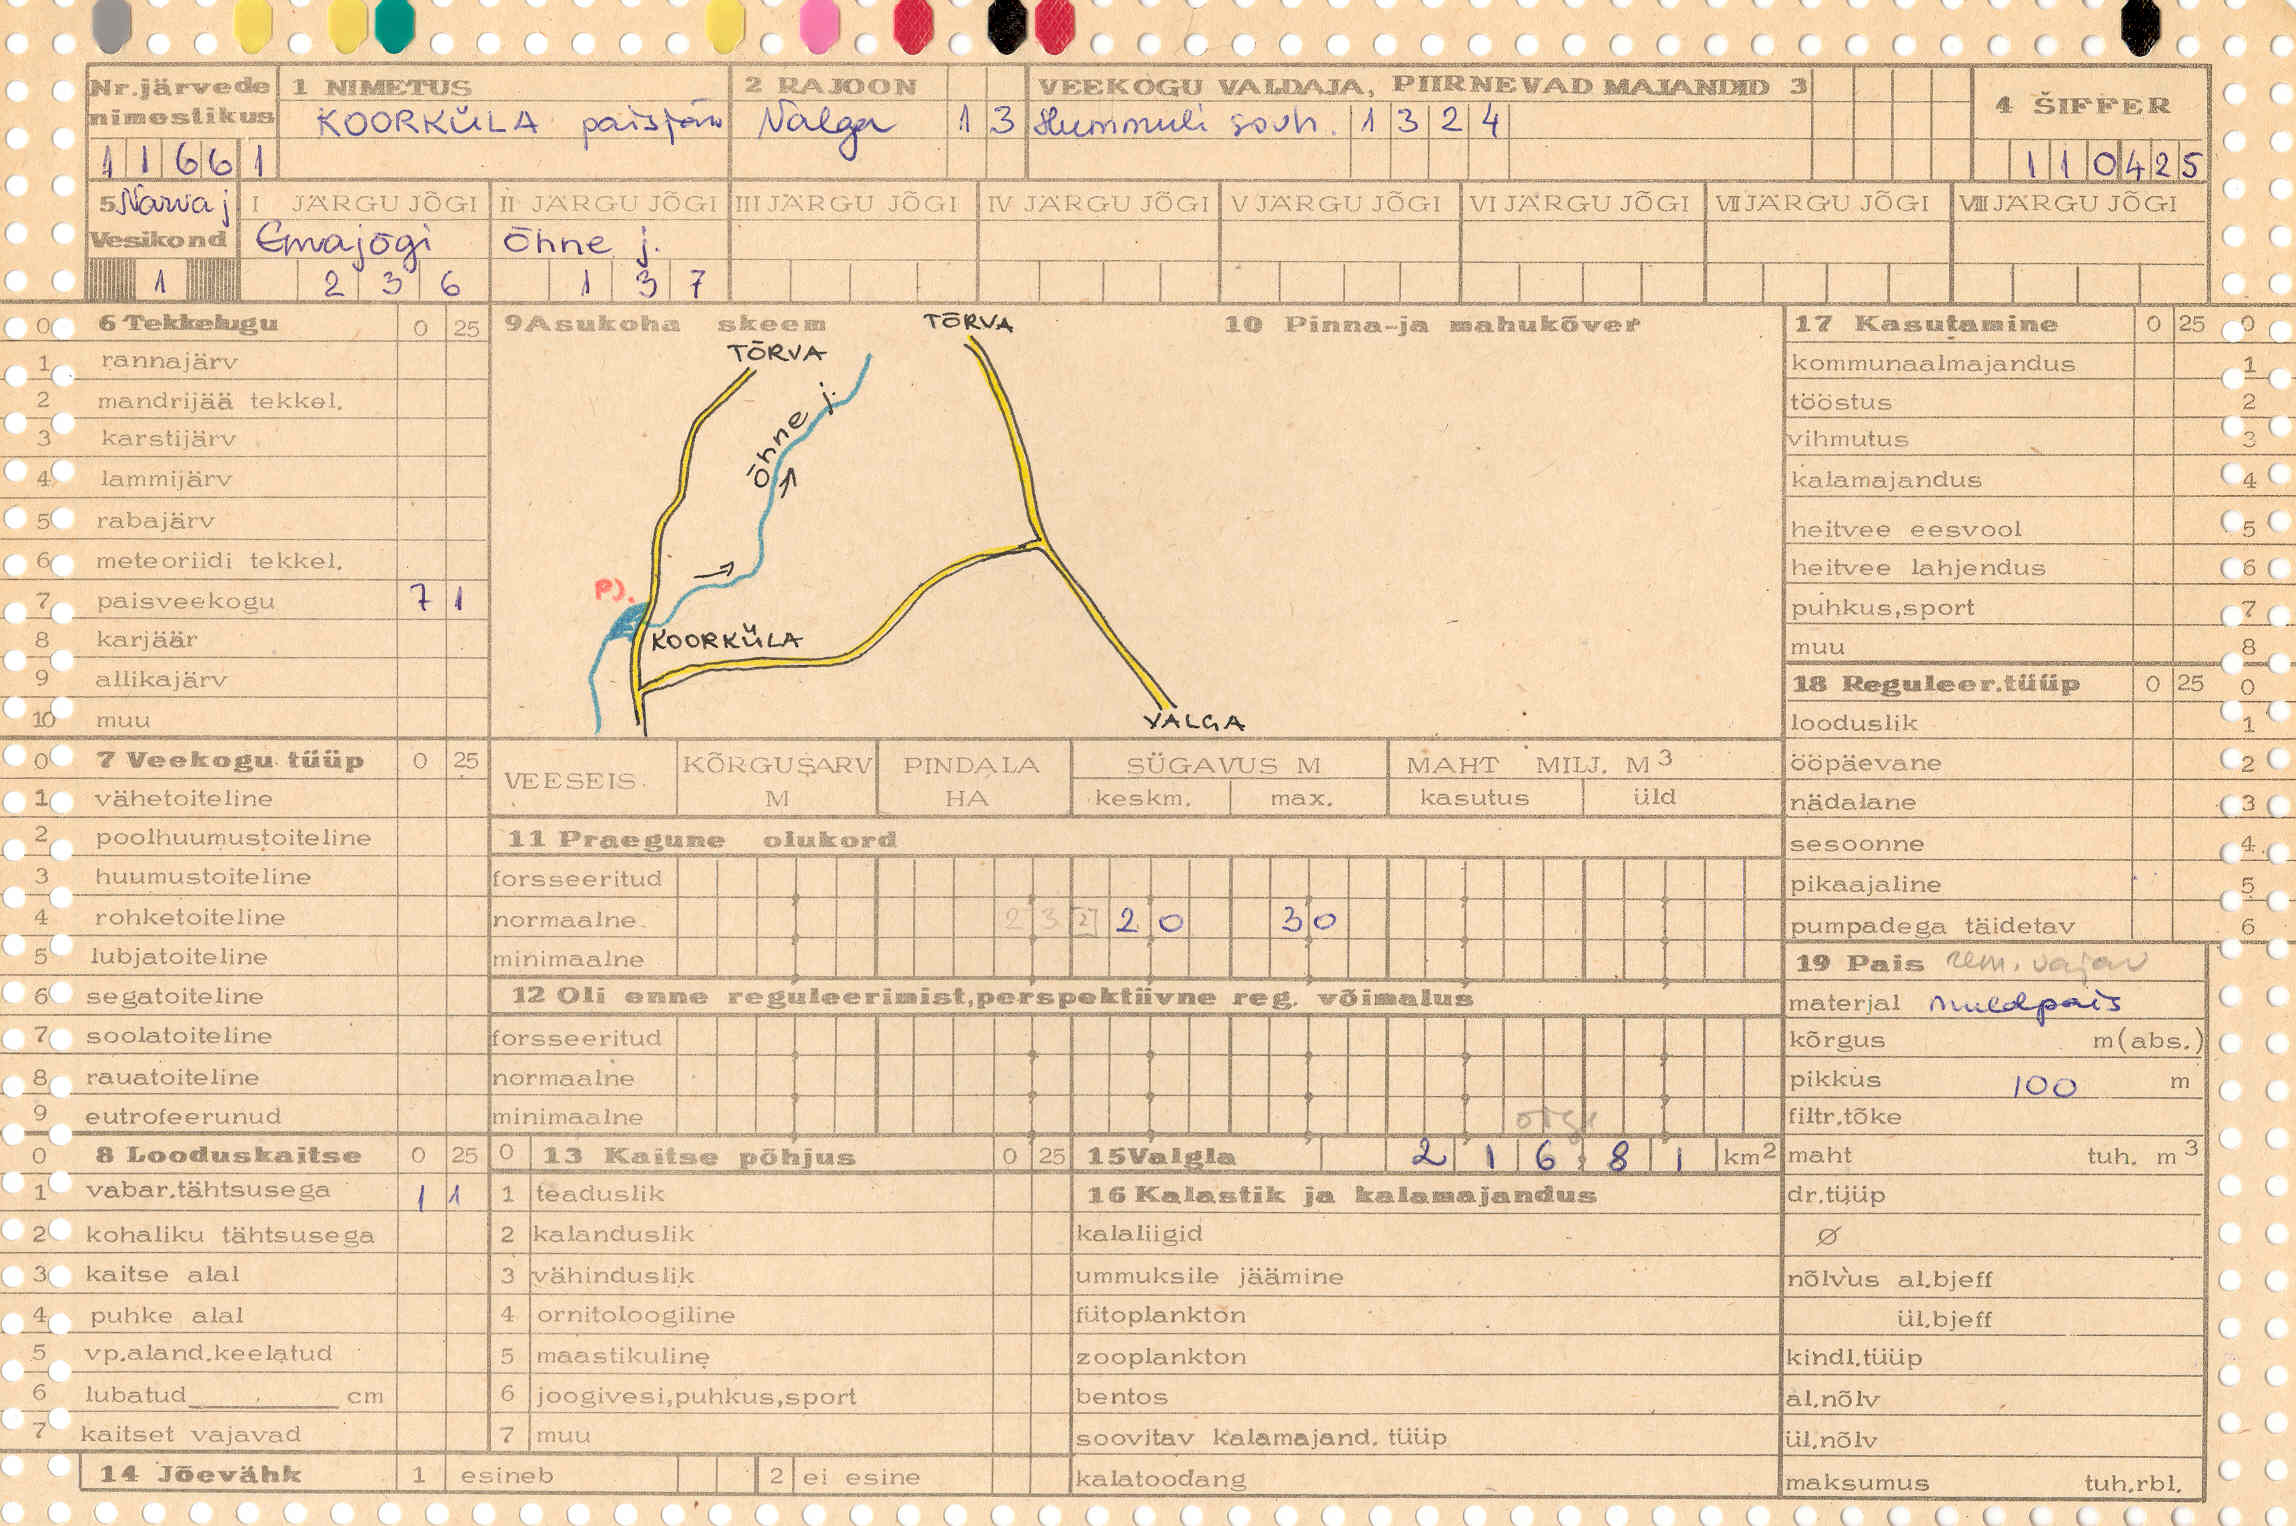 Nr.järvede nimestikus
11661
1 NIMETUS
KOORKÜLA paisjärv
2 RAJOON
Valga 13
VEEKOGU VALDAJA, PIIRNEVAD MAJANDID 3
Hummuli sovh. 1324
4 ŠIFFER
110425
5 Narva j
Vesikond
1
I JÄRGU JÕGI
Emajõgi
236
II JÄRGU JÕGI
Õhne j.
137
III JÄRGU JÕGI
IV JÄRGU JÕGI
V JÄRGU JÕGI
VI JÄRGU JÕGI
VII JÄRGU JÕGI
VIII JÄRGU JÕGI
0 6 Tekkelugu 0 25
1 rannajärv
2 mandrijää tekkel.
3 karstijärv
4 lammijärv
5 rabajärv
6 meteoriidi tekkel.
7 paisveekogu 7 1
8 karjäär
9 allikajärv
10 muu
0 7 Veekogu tüüp 0 25
1 vähetoiteline
2 poolhuumustoiteline
3 huumustoiteline
4 rohketoiteline
5 lubjatoiteline
6 segatoiteline
7 soolatoiteline
8 rauatoiteline
9 eutrofeerunud
0 8 Looduskaitse 0 25
1 vabar.tähtsusega 1 1
2 kohaliku tähtsusega
3 kaitse alal
4 puhke alal
5 vp.aland.keelatud
6 lubatud cm
7 kaitset vajavad
14 Jõevähk 1 esineb 2 ei esine
9 Asukoha skeem
10 Pinna-ja mahukõver
TÕRVA
TÕRVA
Õhne j.
PJ.
KOORKÜLA
VALGA
VEESEIS
KÕRGUSARV M
PINDALA HA
SÜGAVUS M
keskm. max.
MAHT MILJ. M3
kasutus üld
11 Praegune olukord
forsseeritud
normaalne 23 [2] 20 30
minimaalne
12 Oli enne reguleerimist,perspektiivne reg. võimalus
forsseeritud
normaalne
minimaalne
0 13 Kaitse põhjus 0 25
1 teaduslik
2 kalanduslik
3 vähinduslik
4 ornitoloogiline
5 maastikuline
6 joogivesi,puhkus,sport
7 muu
15 Valgla 216,81 km2
16 Kalastik ja kalamajandus
kalaliigid
ummuksile jäämine
fütoplankton
zooplankton
bentos
soovitav kalamajand. tüüp
kalatoodang
17 Kasutamine 0 25 0
kommunaalmajandus 1
tööstus 2
vihmutus 3
kalamajandus 4
heitvee eesvool 5
heitvee lahjendus 6
puhkus,sport 7
muu 8
18 Reguleer.tüüp 0 25 0
looduslik 1
ööpäevane 2
nädalane 3
sesoonne 4
pikaajaline 5
pumpadega täidetav 6
19 Pais rem. vajav
materjal muldpais
kõrgus m(abs.)
pikkus 100 m
filtr.tõke
maht tuh. m3
dr.tüüp
Ø
nõlvus al.bjeff
ül.bjeff
kindl.tüüp
al.nõlv
ül.nõlv
maksumus tuh.rbl.